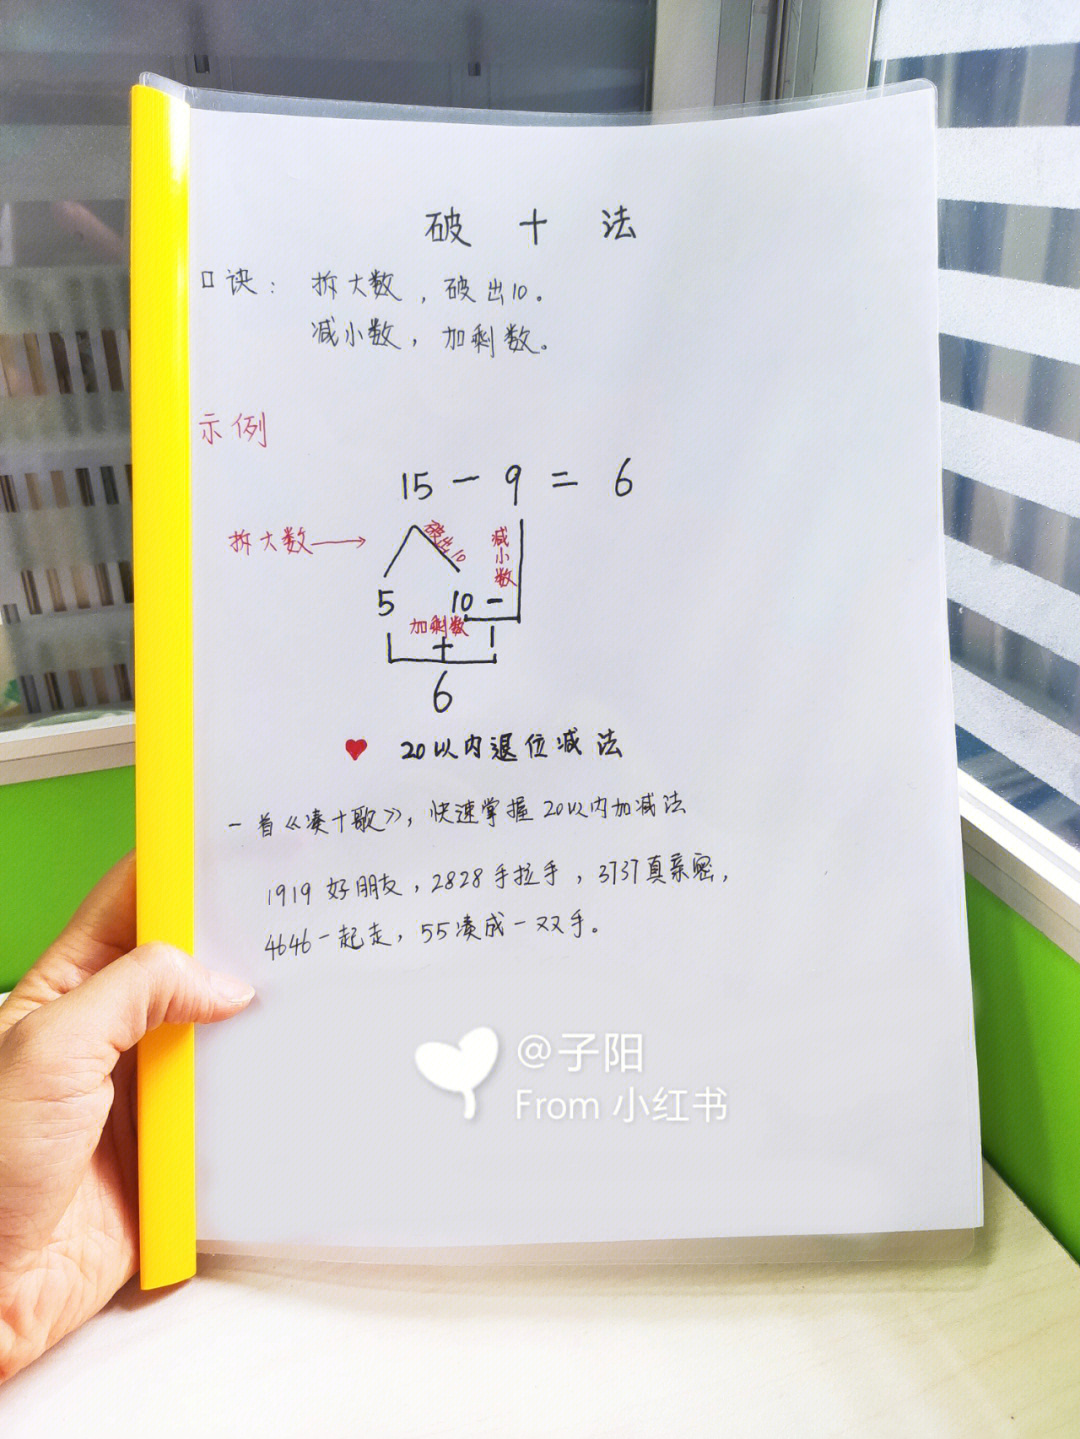 破 十 法
口诀： 拆大数，破出10。
减小数，加剩数。
示例
15 - 9 = 6
拆大数
破出10
减小数
5 10 -
加剩数
1
+
6
20以内退位减法
一首《凑十歌》，快速掌握20以内加减法
1919 好朋友，2828手拉手，3737真亲密，
4646一起走，55凑成一双手。
@子阳
From 小红书